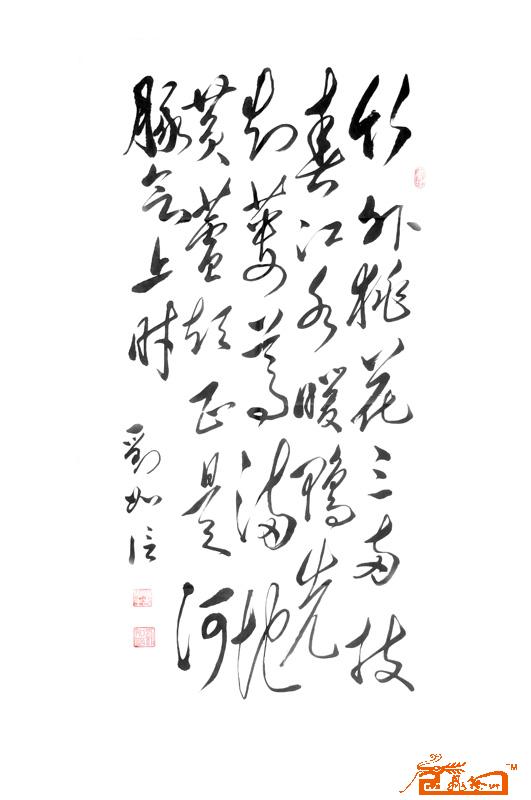 竹外桃花三两枝
春江水暖鴨先
知蒌蒿满地
黄蘆短正是河
豚上时
劉如信